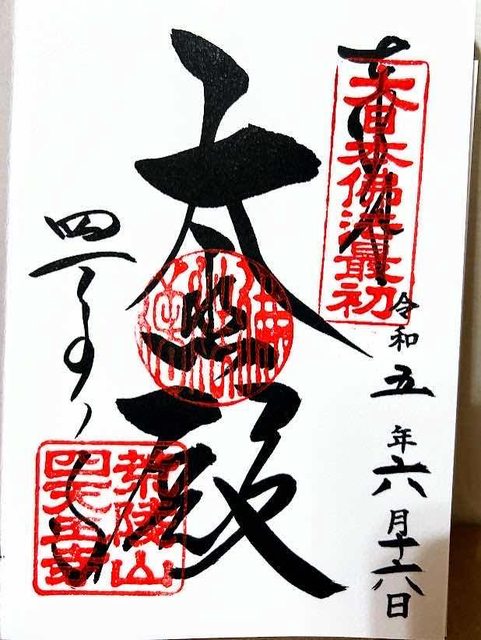 奉拝
大日本佛法最初
令和五年六月十六日
大悲殿
四天王寺
荒陵山
四天王寺